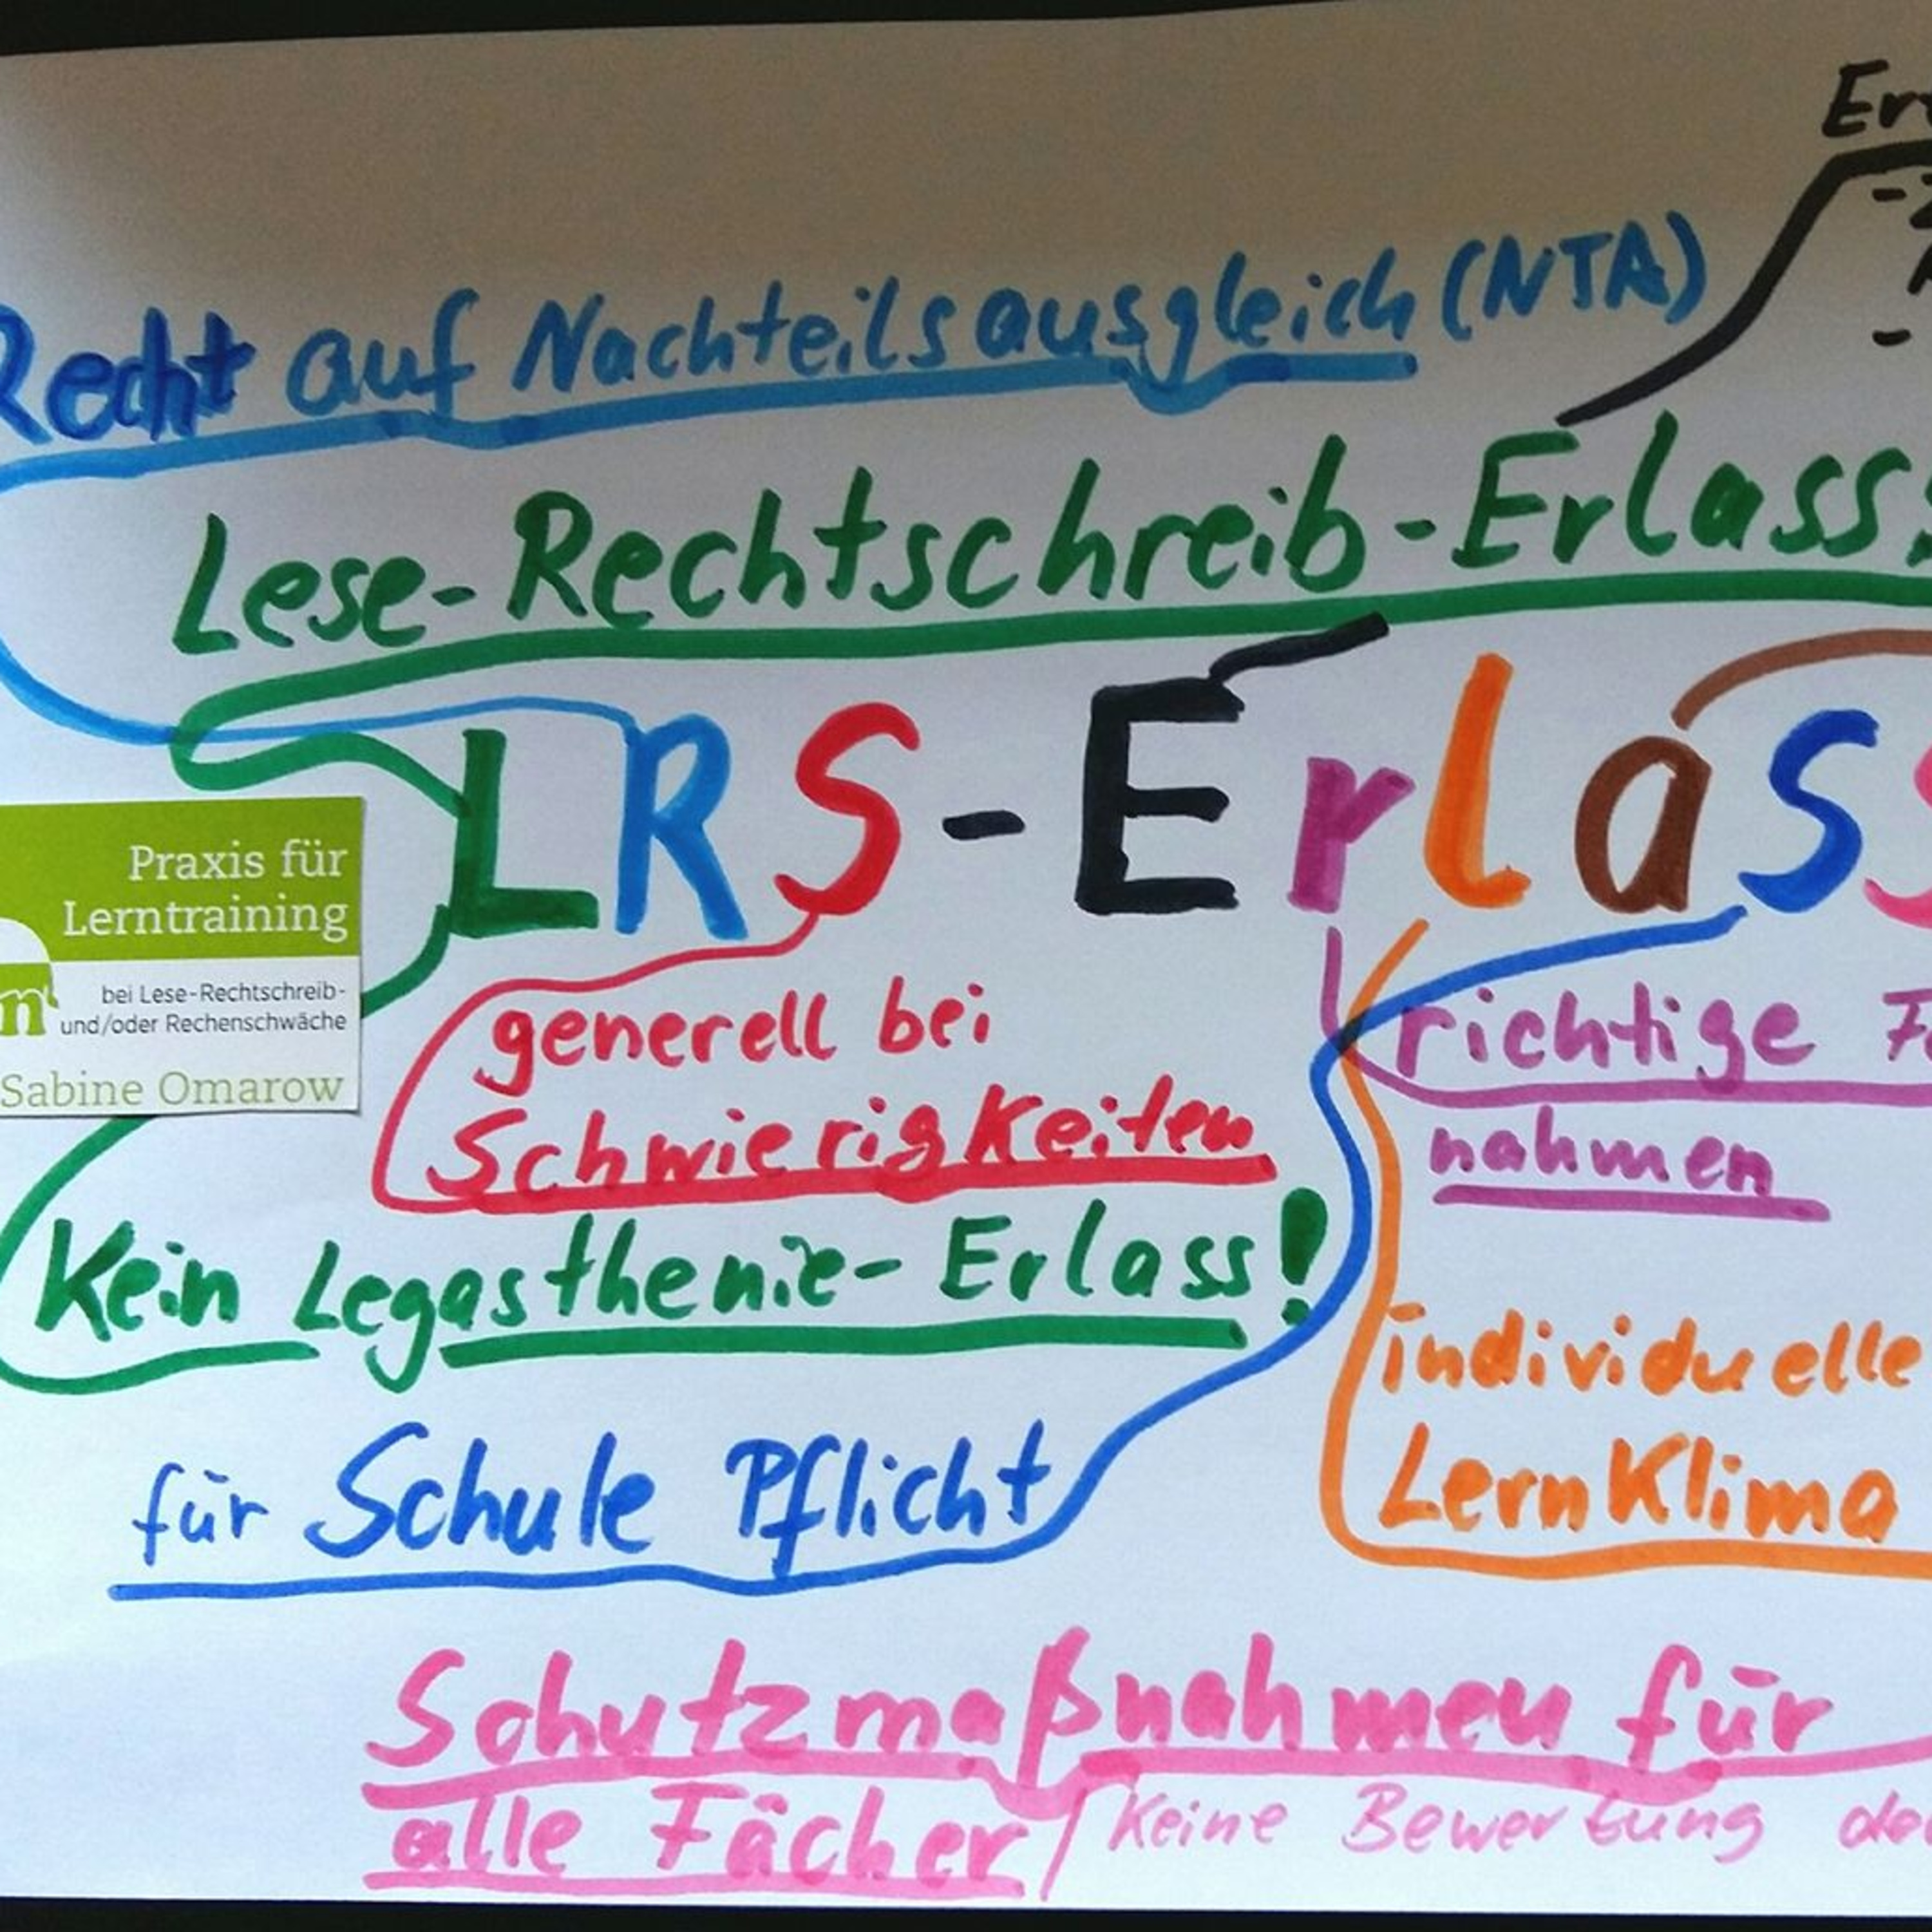 Recht auf Nachteilsausgleich (NTA)
Lese-Rechtschreib-Erlass!
LRS-Erlass
Praxis für
Lerntraining
bei Lese-Rechtschreib-
und/oder Rechenschwäche
Sabine Omarow
generell bei
Schwierigkeiten
richtige
nahmen
Kein Legasthenie-Erlass!
individuelle
LernKlima
für Schule Pflicht
Schutzmaßnahmen für
alle Fächer / Keine Bewertung